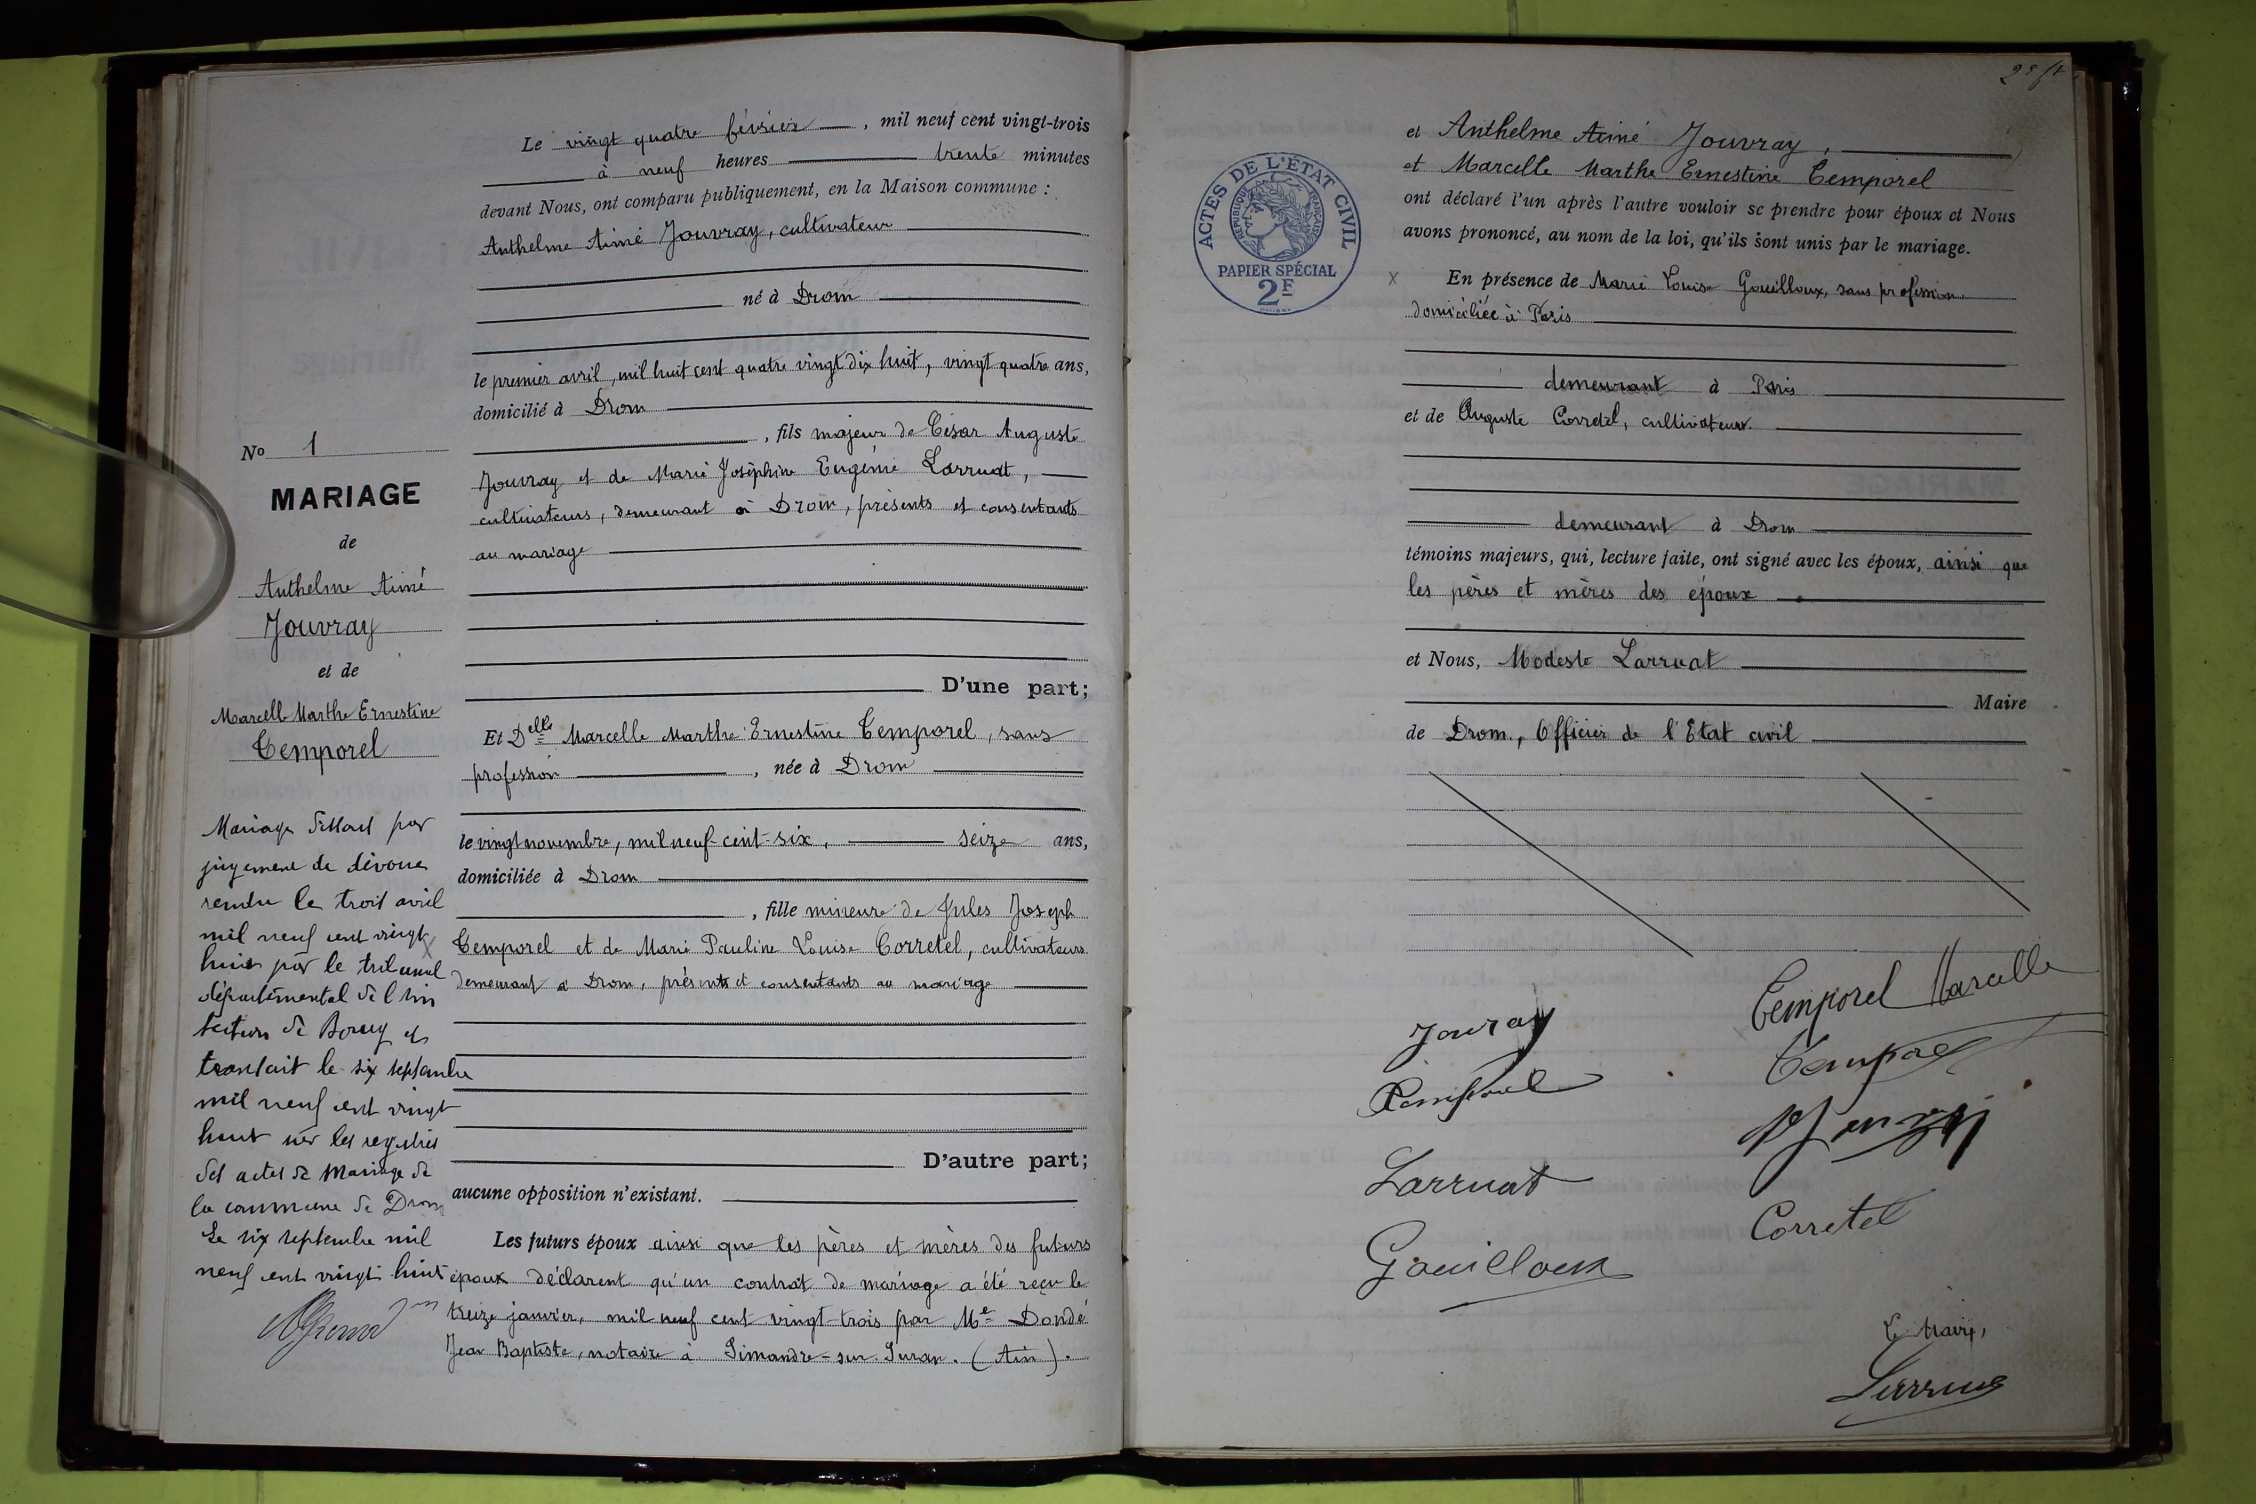 Le vingt quatre février, mil neuf cent vingt-trois
à neuf heures trente minutes
devant Nous, ont comparu publiquement, en la Maison commune :
Anthelme Aimé Jouvray, cultivateur
né à Drom
le premier avril, mil huit cent quatre vingt dix huit, vingt quatre ans,
domicilié à Drom
, fils majeur de César Auguste
Jouvray et de Marie Joséphine Eugénie Larruat,
cultivateurs, demeurant à Drom, présents et consentants
au mariage
D'une part;
No 1
MARIAGE
de
Anthelme Aimé
Jouvray
et de
Marcelle Marthe Ernestine
Temporel
Et Delle Marcelle Marthe Ernestine Temporel, sans
profession, née à Drom
le vingt novembre, mil neuf cent-six, seize ans,
domiciliée à Drom
, fille mineure de Jules Joseph
Temporel et de Marie Pauline Louise Corretel, cultivateurs
demeurant à Drom, présents et consentants au mariage
D'autre part;
aucune opposition n'existant.
Les futurs époux ainsi que les pères et mères des futurs
époux déclarent qu'un contrat de mariage a été reçu le
treize janvier, mil neuf cent vingt-trois par Me Dondé
Jean Baptiste, notaire à Simandre-sur-Suran. (Ain).
Mariage dissous par
jugement de divorce
rendu le trois avril
mil neuf cent vingt
huit par le tribunal
départemental de l'Ain
section de Bourg et
transcrit le six septembre
mil neuf cent vingt
huit sur les registres
des actes de Mariage de
la commune de Drom
Le six septembre mil
neuf cent vingt huit
et Anthelme Aimé Jouvray,
et Marcelle Marthe Ernestine Temporel
ont déclaré l'un après l'autre vouloir se prendre pour époux et Nous
avons prononcé, au nom de la loi, qu'ils sont unis par le mariage.
ACTES DE L'ÉTAT CIVIL
RÉPUBLIQUE FRANÇAISE
PAPIER SPÉCIAL
2F
En présence de Marie Louise Gouilloux, sans profession,
domiciliée à Paris
demeurant à Paris
et de Auguste Corretel, cultivateur.
demeurant à Drom
témoins majeurs, qui, lecture faite, ont signé avec les époux, ainsi que
les pères et mères des époux
et Nous, Modeste Larruat
Maire
de Drom, Officier de l'Etat civil
Temporel Marcelle
Jouvray
Temporel
Temporel
Larruat
Corretel
Gouilloux
Le Maire,
Larruat